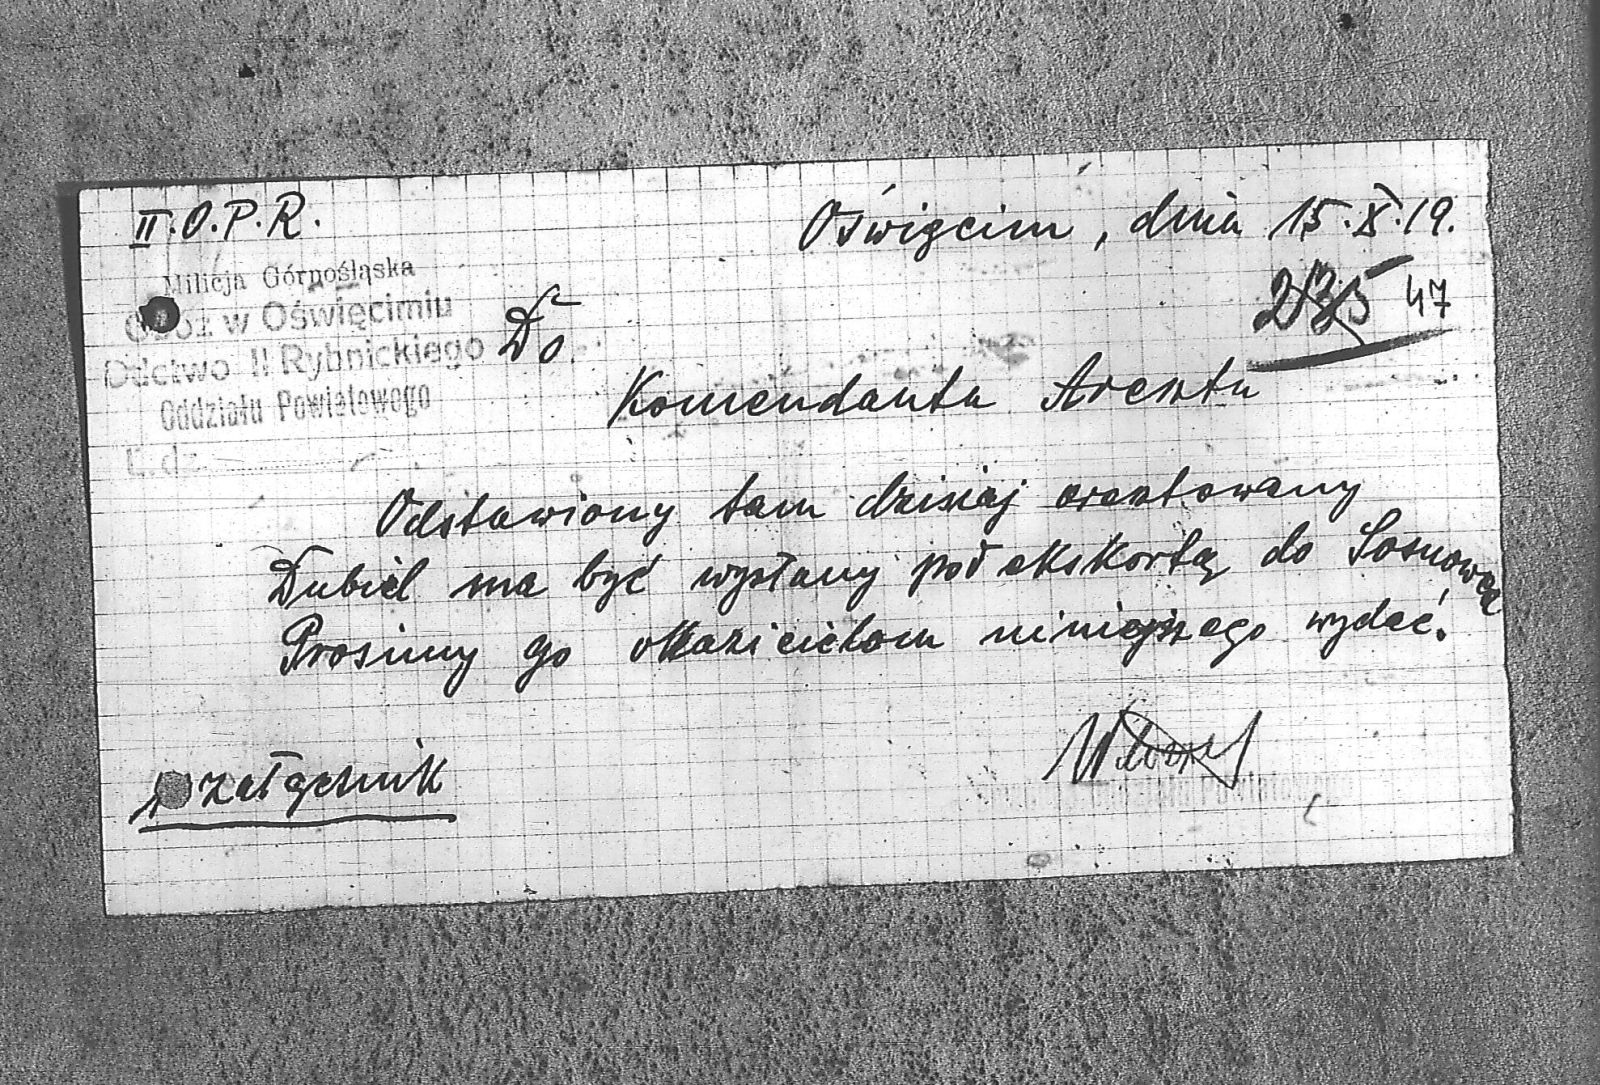 II.O.P.R.
Oświęcim, dnia 15.X.19.
Milicja Górnośląska
Obóz w Oświęcimiu
Ddctwo II Rybnickiego
Oddziału Powiatowego
L. dz.
235 47
Do
Komendanta Aresztu
Odstawiony tam dzisiaj aresztowany
Dubiel ma być wysłany pod ekskortą do Sosnowca
Prosimy go okazicielom niniejszego wydać.
1 załącznik
Oddziału Powiatowego